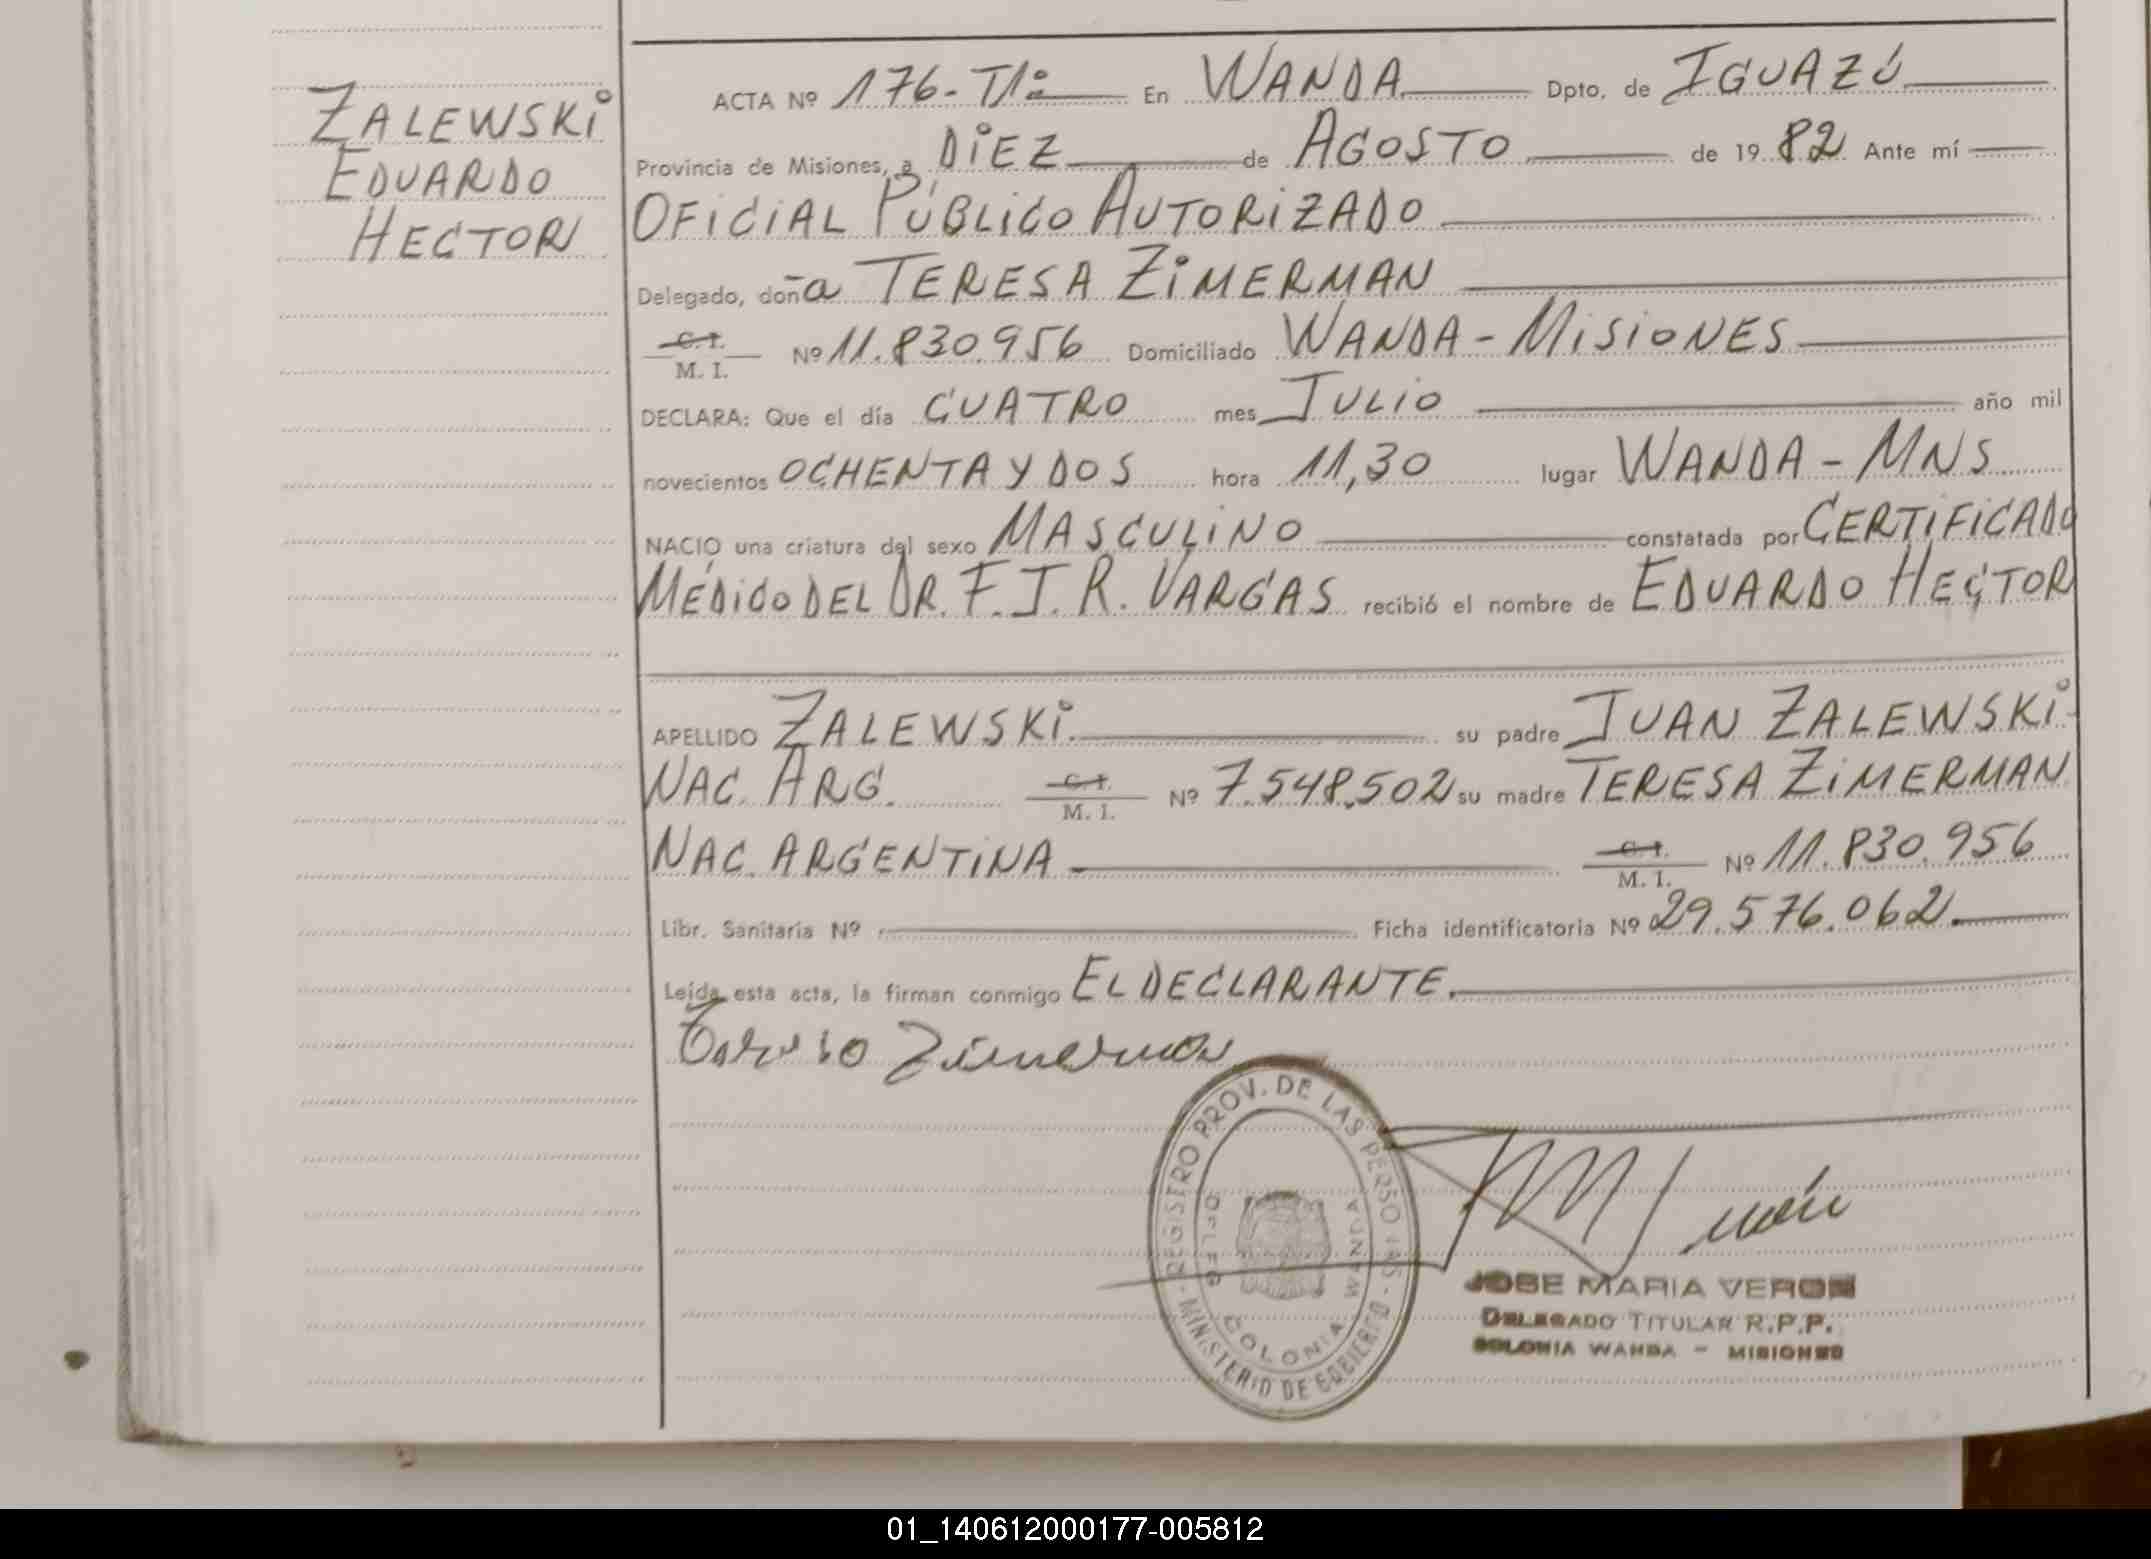 ZALEWSKI
EDUARDO
HECTOR
ACTA Nº 176-T/1: En WANDA Dpto. de IGUAZÚ
Provincia de Misiones, a DIEZ de AGOSTO de 1982 Ante mí
OFICIAL PÚBLICO AUTORIZADO
Delegado, doña TERESA ZIMERMAN
C.I.
M. I. Nº 11.830.956 Domiciliado WANDA - MISIONES
DECLARA: Que el día CUATRO mes JULIO año mil
novecientos OCHENTA Y DOS hora 11,30 lugar WANDA - MNS
NACIO una criatura del sexo MASCULINO constatada por CERTIFICADO
MÉDICO DEL DR. F. J. R. VARGAS recibió el nombre de EDUARDO HECTOR
APELLIDO ZALEWSKI. su padre JUAN ZALEWSKI-
NAC. ARG. C.I. M. I. Nº 7.548.502 su madre TERESA ZIMERMAN
NAC. ARGENTINA C.I. M. I. Nº 11.830.956
Libr. Sanitaria Nº Ficha identificatoria Nº 29.576.062.
Leída esta acta, la firman conmigo EL DECLARANTE.
Teresa Zimerman
REGISTRO PROV. DE LAS PERSONAS - MINISTERIO DE GOBIERNO
DELEG COLONIA WANDA
JOSE MARIA VERON
DELEGADO TITULAR R.P.P.
COLONIA WANDA - MISIONES
01_140612000177-005812